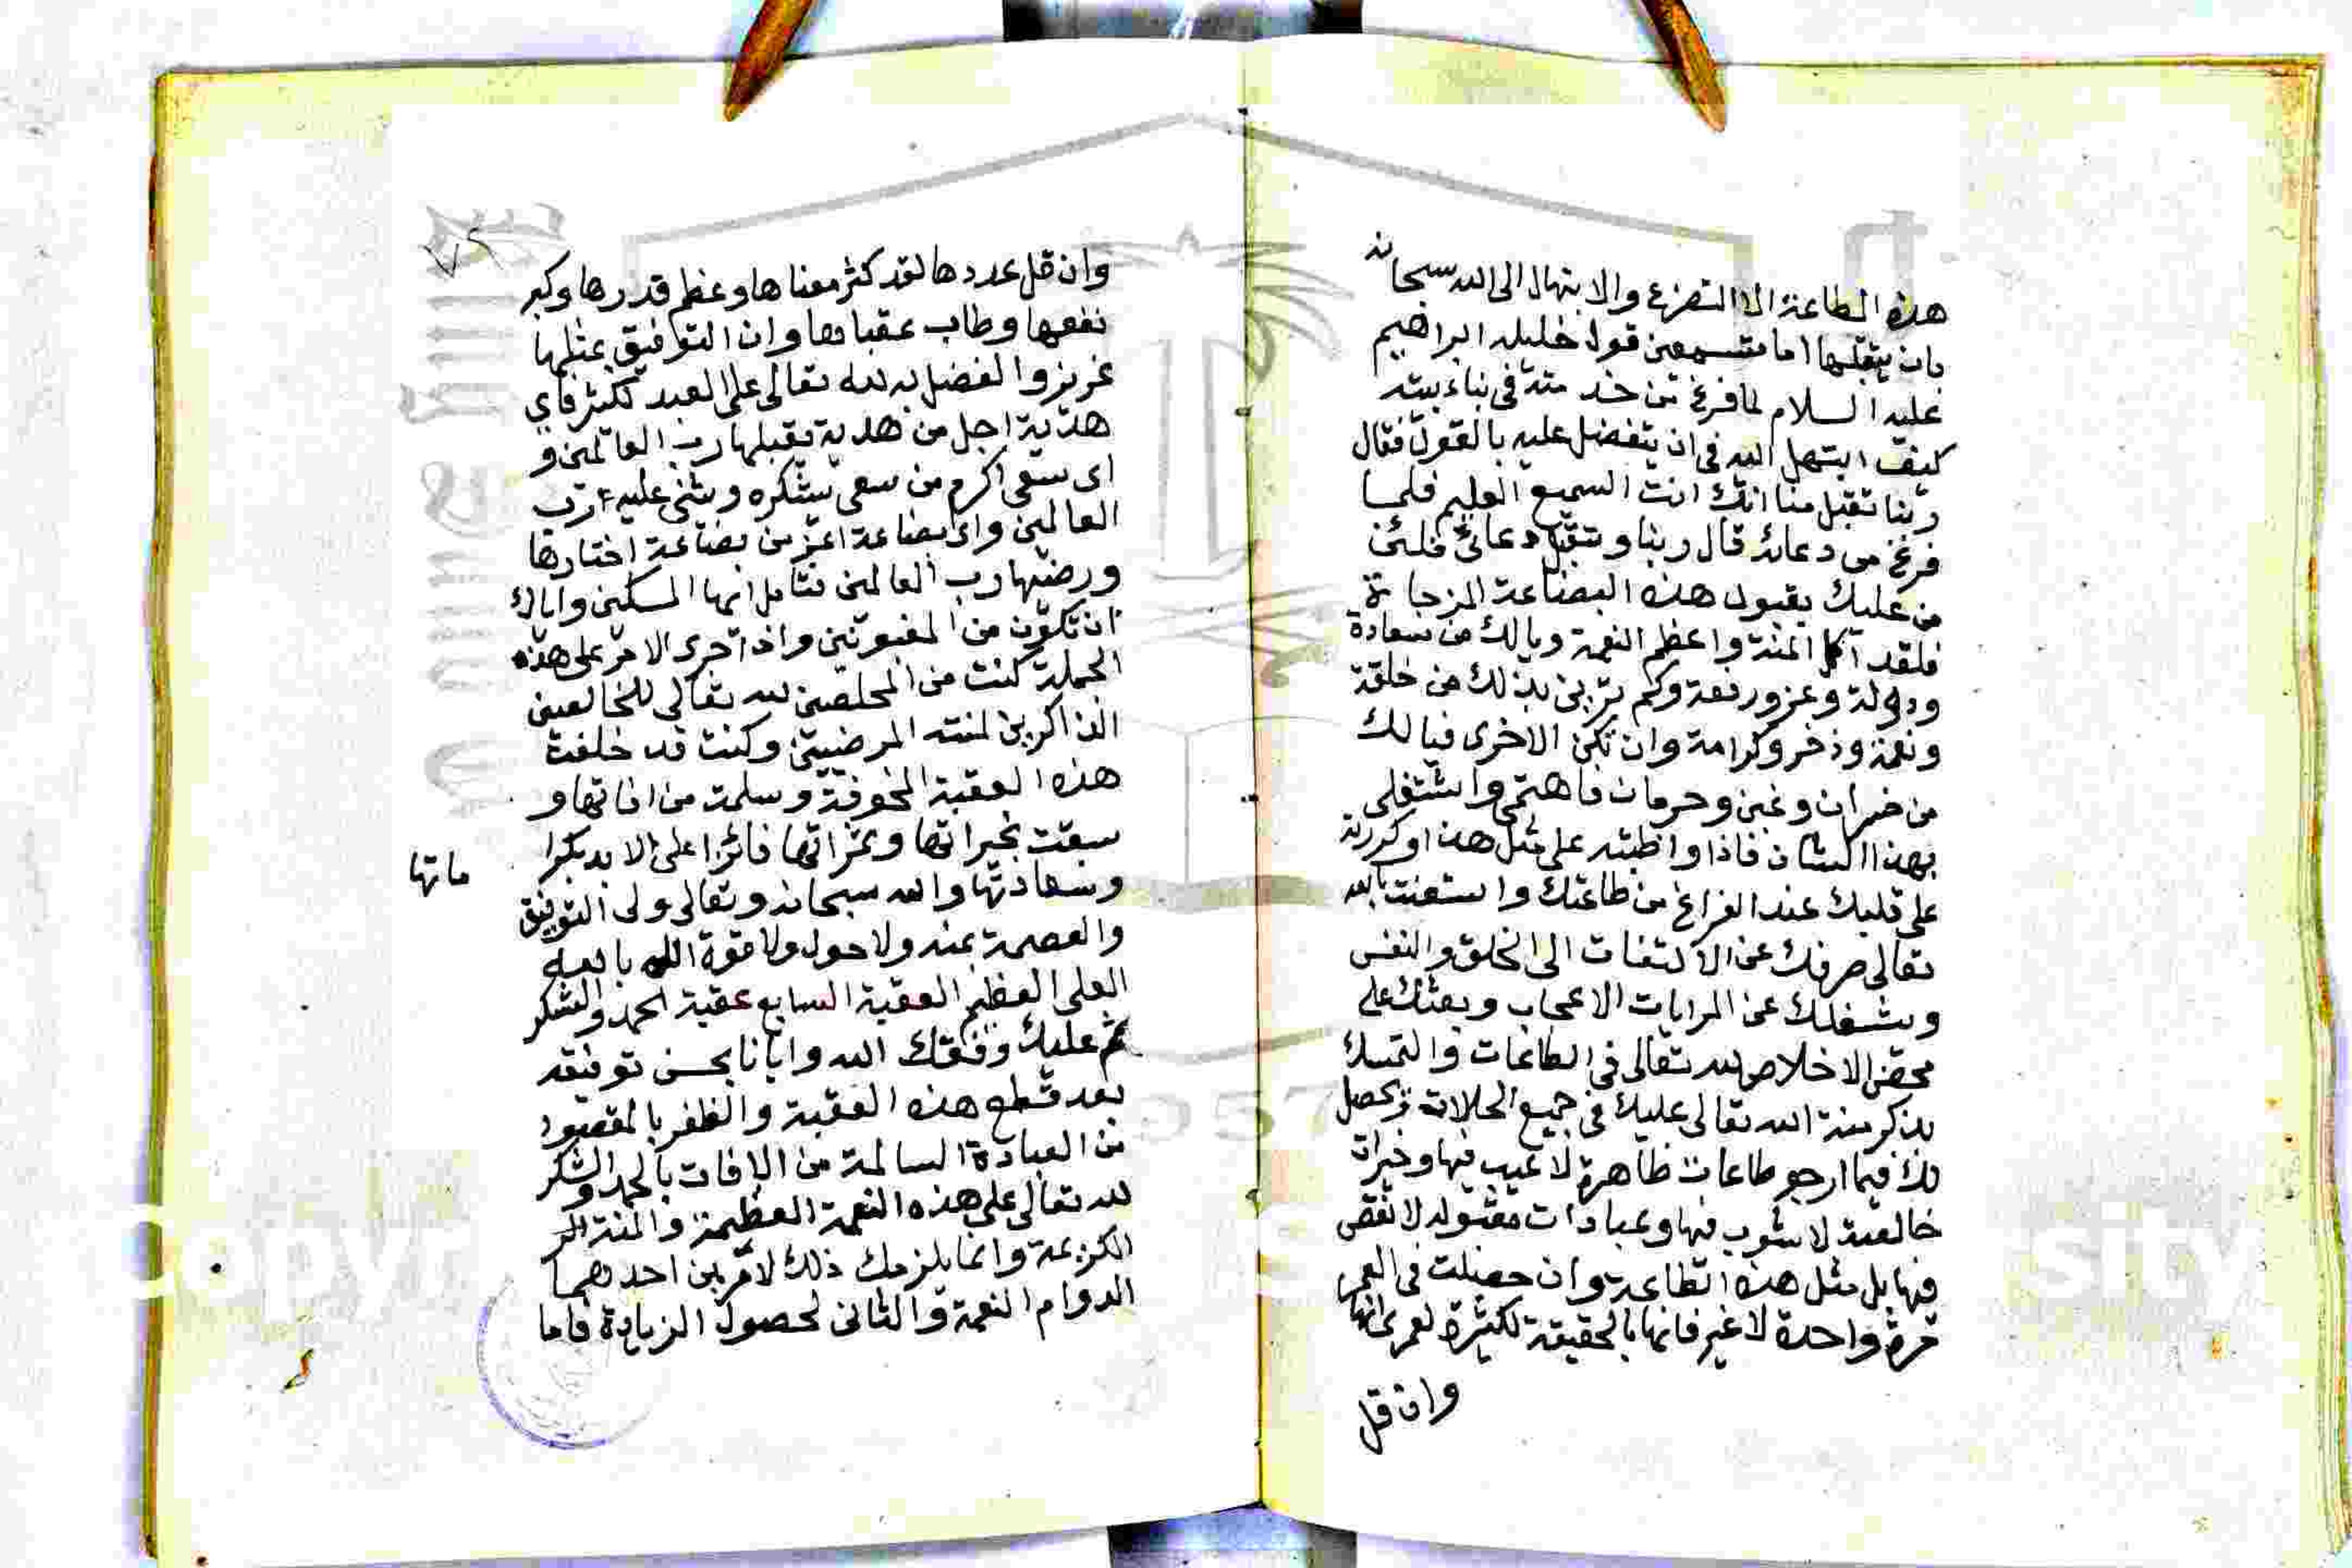 هذه الطاعة الا التضرع والابتهال الى الله سبحانه
بان يتقبلها اما تسمعن قول خليله ابراهيم
عليه السلام لما فرغ من خدمته فى بناء بيته
كيف ابتهل الله فى ان يتفضل عليه بالقول فقال
ربنا تقبل منا انك انت السميع العليم فلما
فرغ من دعائه قال ربنا وتقبل دعائى فلئن
من عليك بقبول هذه البضاعة المزجاة
فلقد اكمل المنة واعظم النعمة ويالك من سعادة
ودولة وعز ورفعة وكم ترين بذلك من خلقة
ونعمة وذخر وكرامة وان تكن الاخرى فيالك
من خسران وغبن وحرمان فاهتمى واشتغلى
بهذا الشان فاذا واظبته على مثل هذا وكررته
على قلبك عند الفراغ من طاعتك واستعنت بالله
تعالى صرفك عن الالتفات الى الخلق والنفس
ويشغلك عن المرايات الاعجاب ويعثك على
محض الاخلاص لله تعالى فى الطاعات والتمسك
بذكر منة الله تعالى عليك فى جميع الحالات وتحصل
لك فيما ارجو طاعات ظاهرة لا عيب فيها وخيرات
خالصة لا شوب فيها وعبادات مقبوله لا نقص
فيها بل مثل هذه الطاعة وان حصلت فى العمر
مرة واحدة لا غير فانها بالحقيقة لكثيرة لعمرى انها
وان قل
وان قل عددها لقد كثر معناها وعظم قدرها وكبر
نفعها وطاب عقباها وان التوفيق بمثلها
عزيز والفضل به لله تعالى على العبد لكثير فاي
هدية اجل من هدية تقبلها رب العالمين و
اى سعى اكرم من سعى يشكره ويثنى عليه رب
العالمين واى بضاعة اعز من بضاعة اختارها
ورضيها رب العالمين فتامل ايها المسكين واياك
ان تكون من المغبونين واذا جرى الامر على هذه
الجملة كنت من المخلصين لله تعالى للخالصين
الذاكرين لمنته المرضيين وكنت قد خلفت
هذه العقبة المخوفة وسلمت من افاتها و
سبقت بخيراتها وثمراتها فائزا على الابد بكرا
ماتها
وسعادتها والله سبحانه وتعالى ولى التوفيق
والعصمة بمنه ولا حول ولا قوة الا بالله
العلى العظيم العقبة السابع عقبة الحمد والشكر
ثم عليك وفقك الله وايانا بحسن توفيقه
بعد قطع هذه العقبة والظفر بالمقصود
من العبادة السالمة من الافات بالحمد والشكر
لله تعالى على هذه النعمة العظيمة والمنة
الكريمة وانما يلزمك ذلك لامرين احدهما
الدوام النعمة والثانى لحصول الزيادة فاما